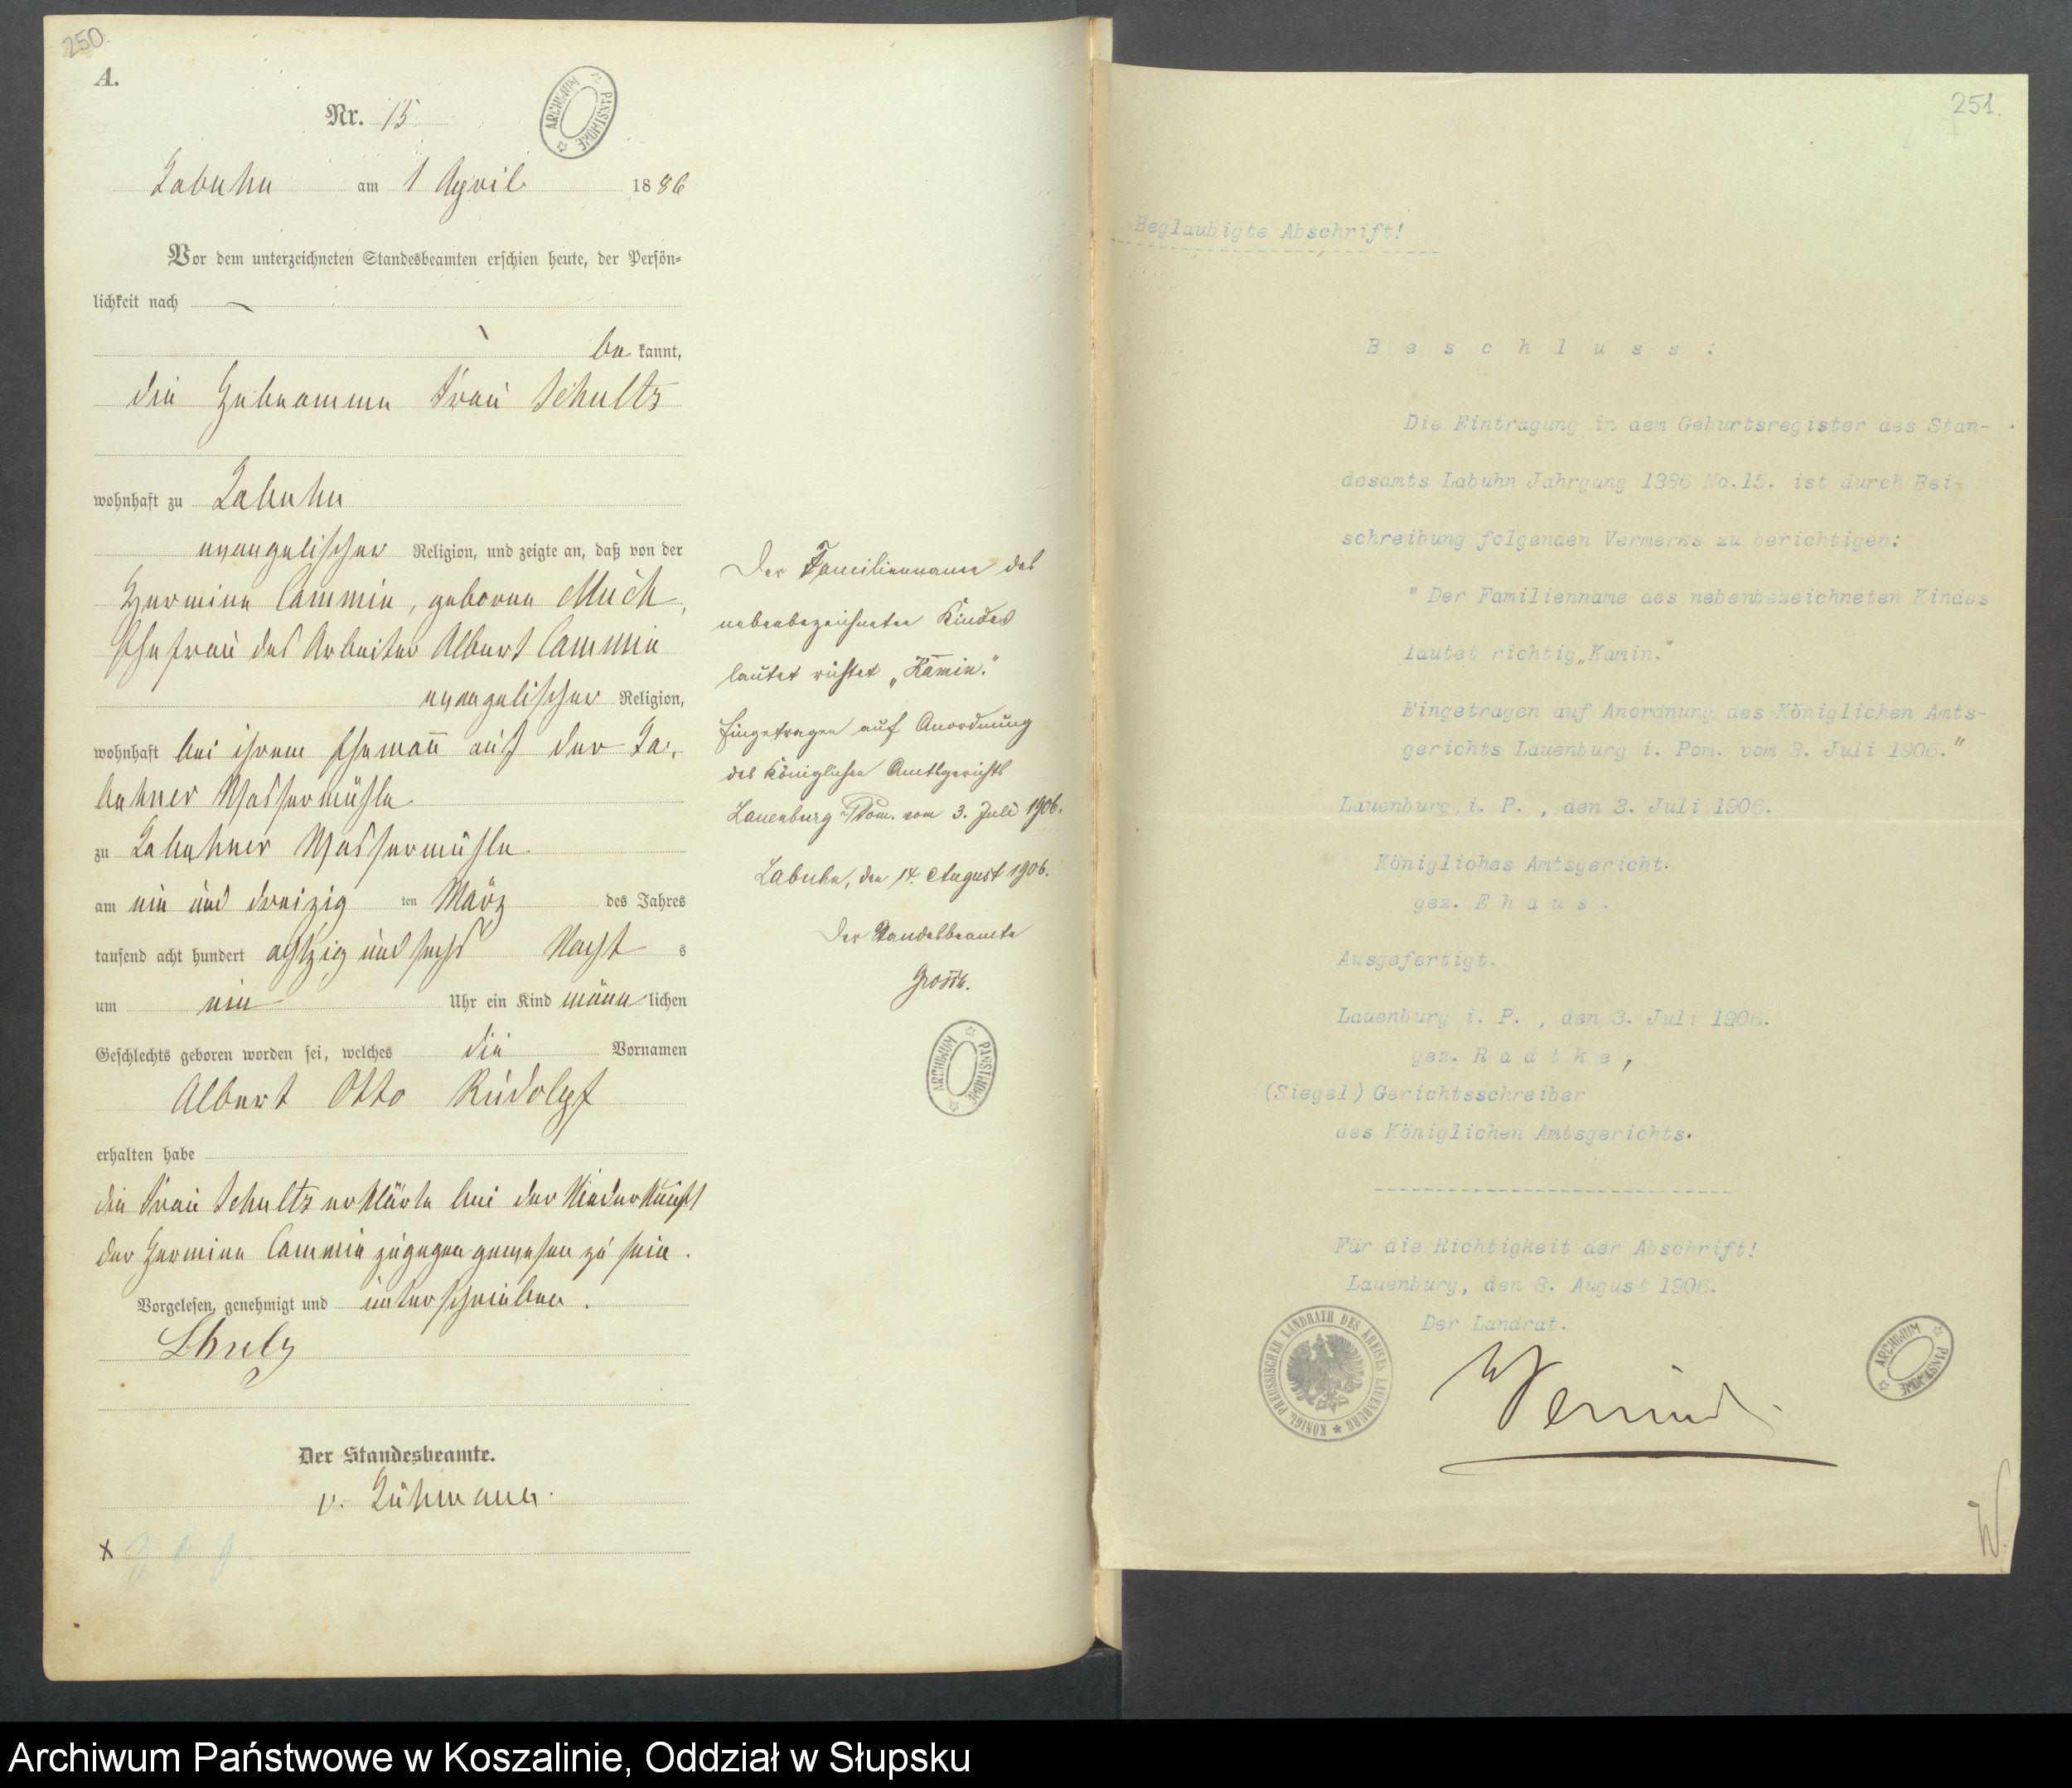 250.
A.
Nr. 15
ARCHIWUM PAŃSTWOWE
Labuhn am 1 April 1886
Vor dem unterzeichneten Standesbeamten erschien heute, der Persön-
lichkeit nach
be kannt,
die Hebeamme Frau Schultz
wohnhaft zu Labuhn
evangelischer Religion, und zeigte an, daß von der
Hermine Cammin, geborene Much,
Ehefrau des Arbeiter Albert Cammin
evangelischer Religion,
wohnhaft bei ihrem Ehemann auf der La-
buhner Wassermühle
zu Labuhner Wassermühle
am ein und dreizig ten März des Jahres
tausend acht hundert achtzig und sechs Nacht s
um ein Uhr ein Kind männ lichen
Geschlechts geboren worden sei, welches die Vornamen
Albert Otto Rudolpf
erhalten habe
die Frau Schultz erklärte bei der Niederkunft
der Hermine Cammin zugegen gewesen zu sein.
Vorgelesen, genehmigt und unterschrieben.
Der Standesbeamte.
v.
Der Familienname des
nebenbezeichneten Kindes
lautet richtet „Kamin."
Eingetragen auf Anordnung
des Königlichen Amtsgerichts
Lauenburg Pom. vom 3. Juli 1906.
Labuhn, den 14. August 1906.
Der Standesbeamte
ARCHIWUM PAŃSTWOWE
251.
Beglaubigte Abschrift!
Beschluss:
Die Eintragung in dem Geburtsregister des Stan-
desamts Labuhn Jahrgang 1886 No.15. ist durch Bei-
schreibung folgenden Vermerks zu berichtigen:
" Der Familienname des nebenbezeichneten Kindes
lautet richtig „Kamin."
Eingetragen auf Anordnung des Königlichen Amts-
gerichts Lauenburg i. Pom. vom 3. Juli 1906."
Lauenburg i. P. , den 3. Juli 1906.
Königliches Amtsgericht.
gez. Ehaus.
Ausgefertigt.
Lauenburg i. P. , den 3. Juli 1906.
gez. Radtke,
(Siegel) Gerichtsschreiber
des Königlichen Amtsgerichts.
Für die Richtigkeit der Abschrift!
Lauenburg, den 8. August 1906.
Der Landrat.
KÖNIGL. PREUSSISCHER LANDRATH DES KREISES LAUENBURG
ARCHIWUM PAŃSTWOWE
Archiwum Państwowe w Koszalinie, Oddział w Słupsku